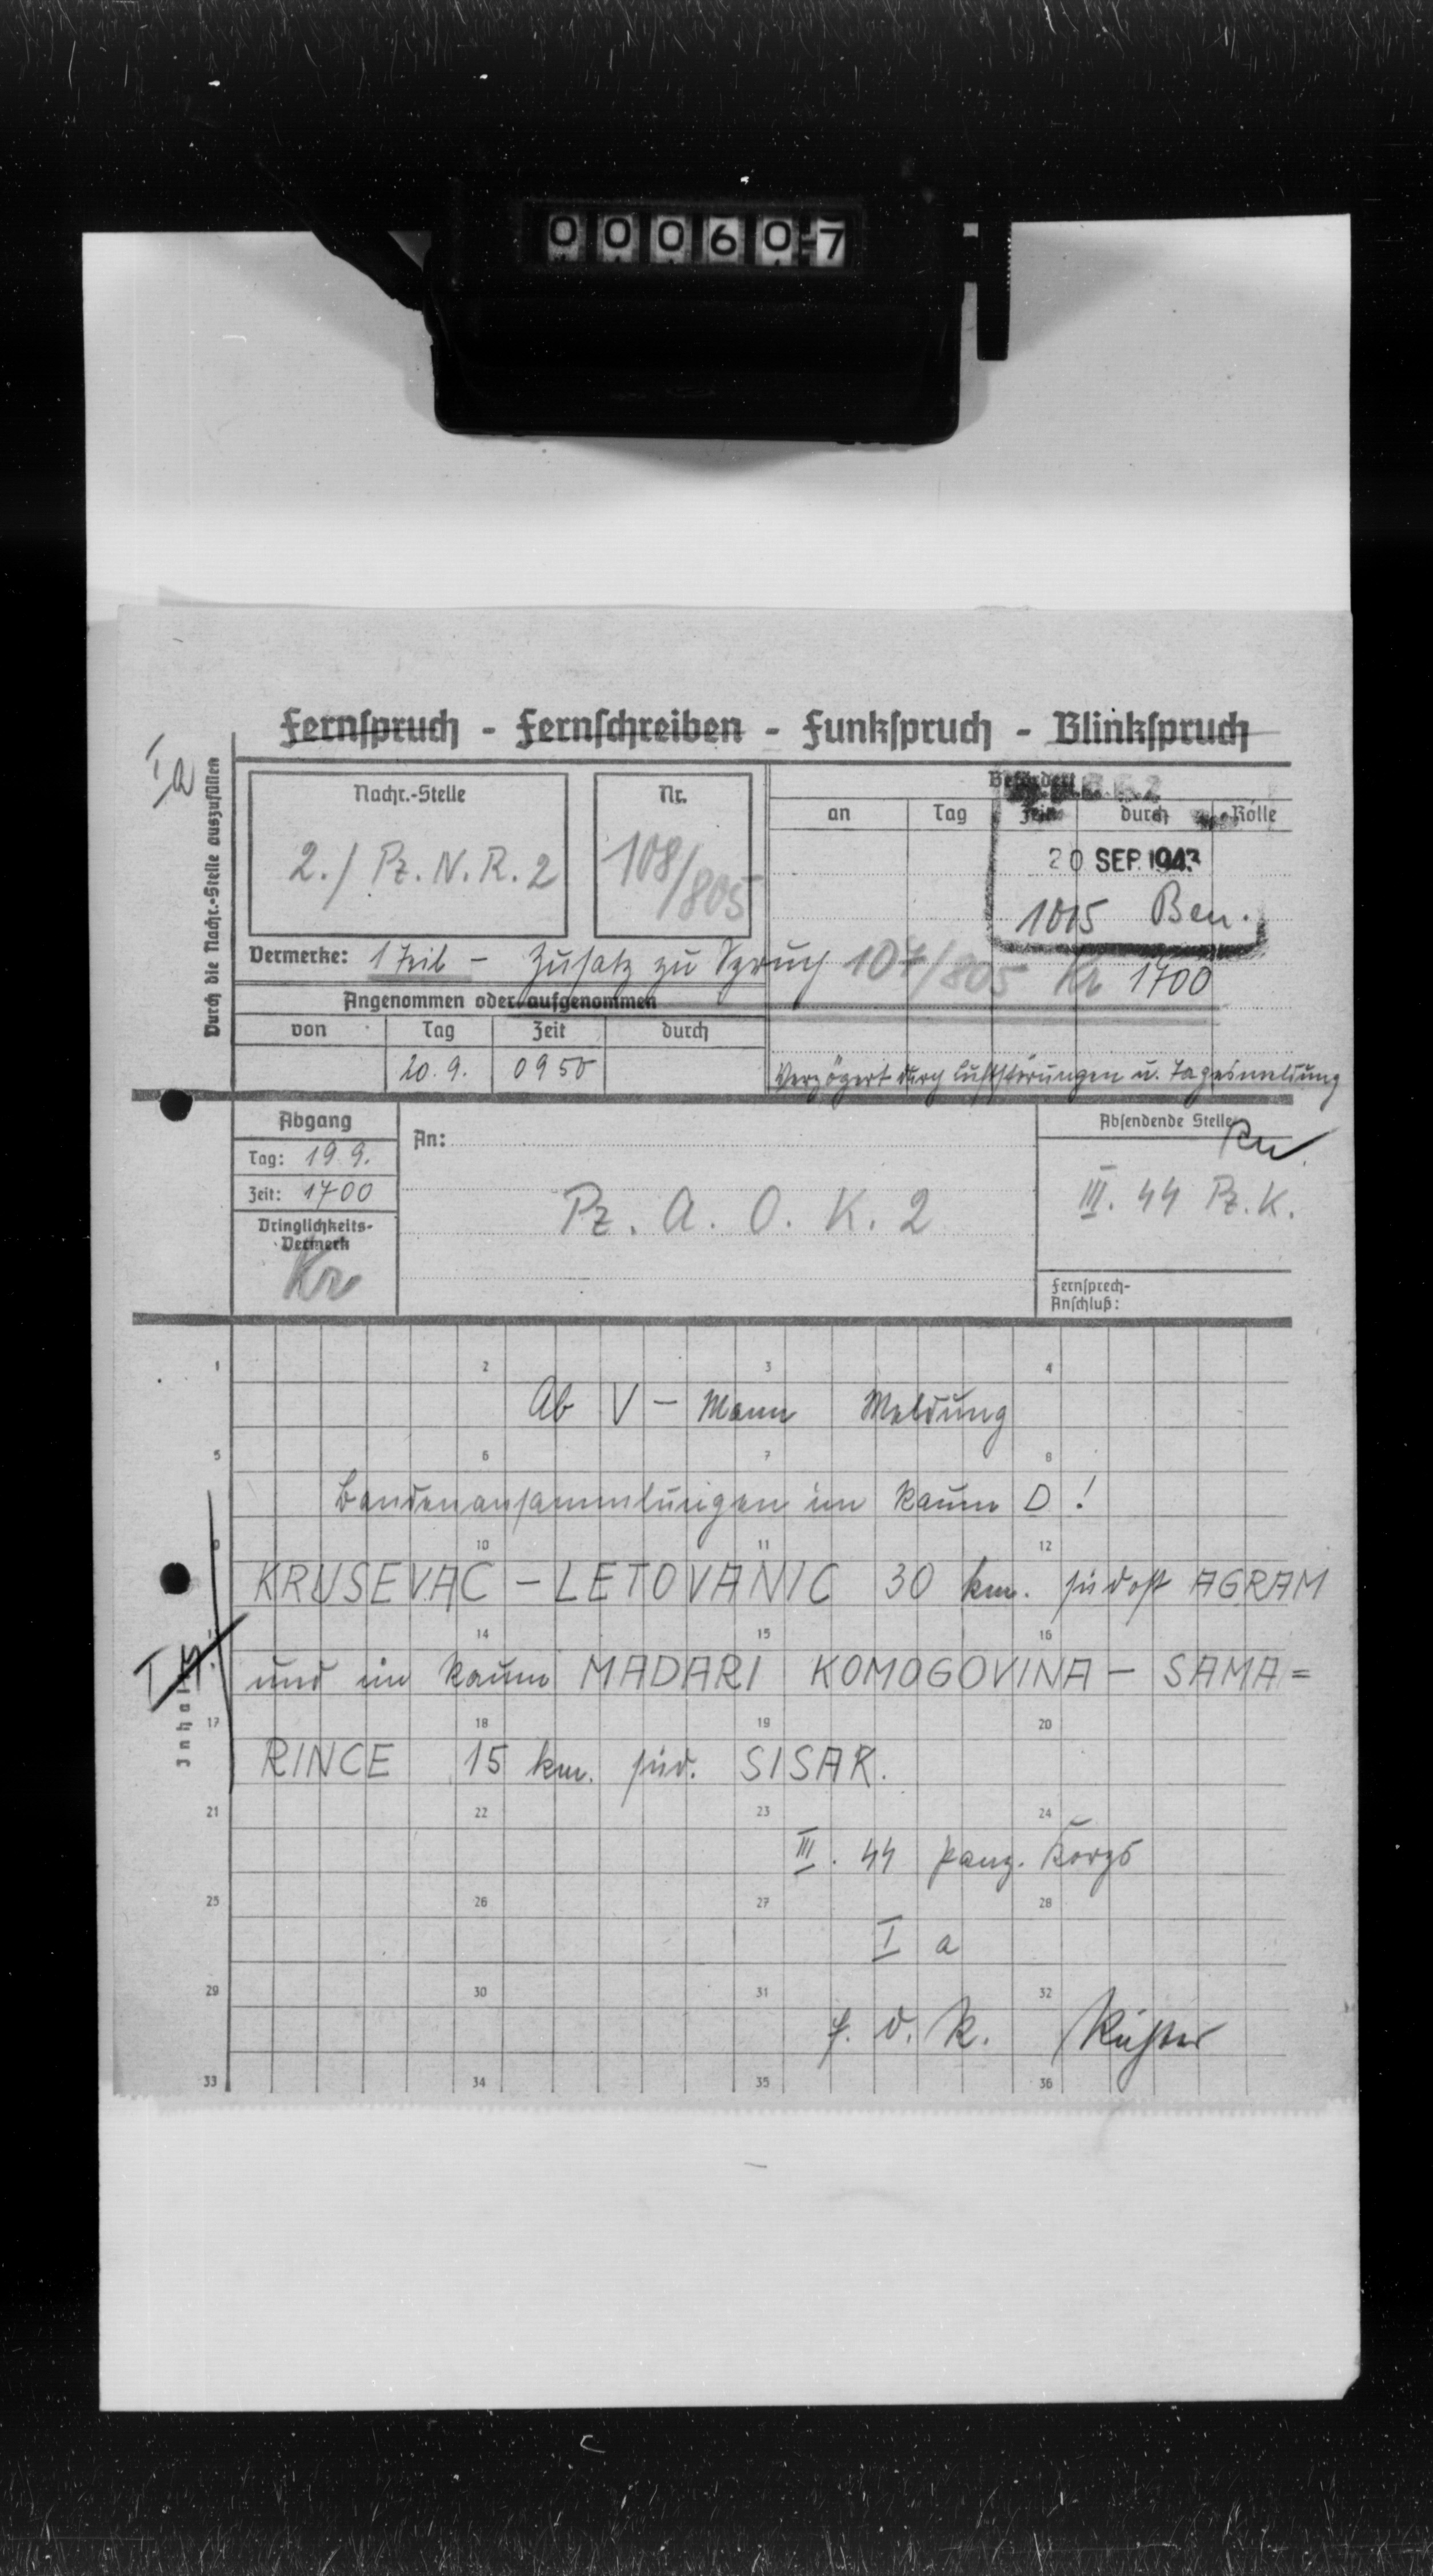 000607
Fernspruch - Fernschreiben - Funkspruch - Blinkspruch
Ia
Durch die Nachr.-Stelle auszufüllen
Nachr.-Stelle
2./ Pz. N. R. 2
Nr.
108/805
Befördert
an Tag Zeit durch Rolle
20 SEP. 1943
1015 Ben.
Vermerke: 1 Teil - Zusatz zu Spruch 107/805 Kr 1700
Angenommen oder aufgenommen
von Tag Zeit durch
20.9. 0950
Verzögert durch Luftstörungen u. Tagesmeldung
Abgang
Tag: 19.9.
Zeit: 1700
Dringlichkeits-
Vermerk
Kr
An:
Pz. A. O. K. 2
Absendende Stelle
III. SS Pz. K.
Fernsprech-
Anschluß:
Inhalt
1 2 3 4
Ab V - Mann Meldung
5 6 7 8
Bandenansammlungen im Raum D!
9 10 11 12
KRUSEVAC - LETOVANIC 30 km. südost AGRAM
13 14 15 16
und im Raum MADARI KOMOGOVINA - SAMA=
17 18 19 20
RINCE 15 km. süd. SISAK.
21 22 23 24
III. SS Panz. Korps
25 26 27 28
I a
29 30 31 32
F. d. R.
33 34 35 36